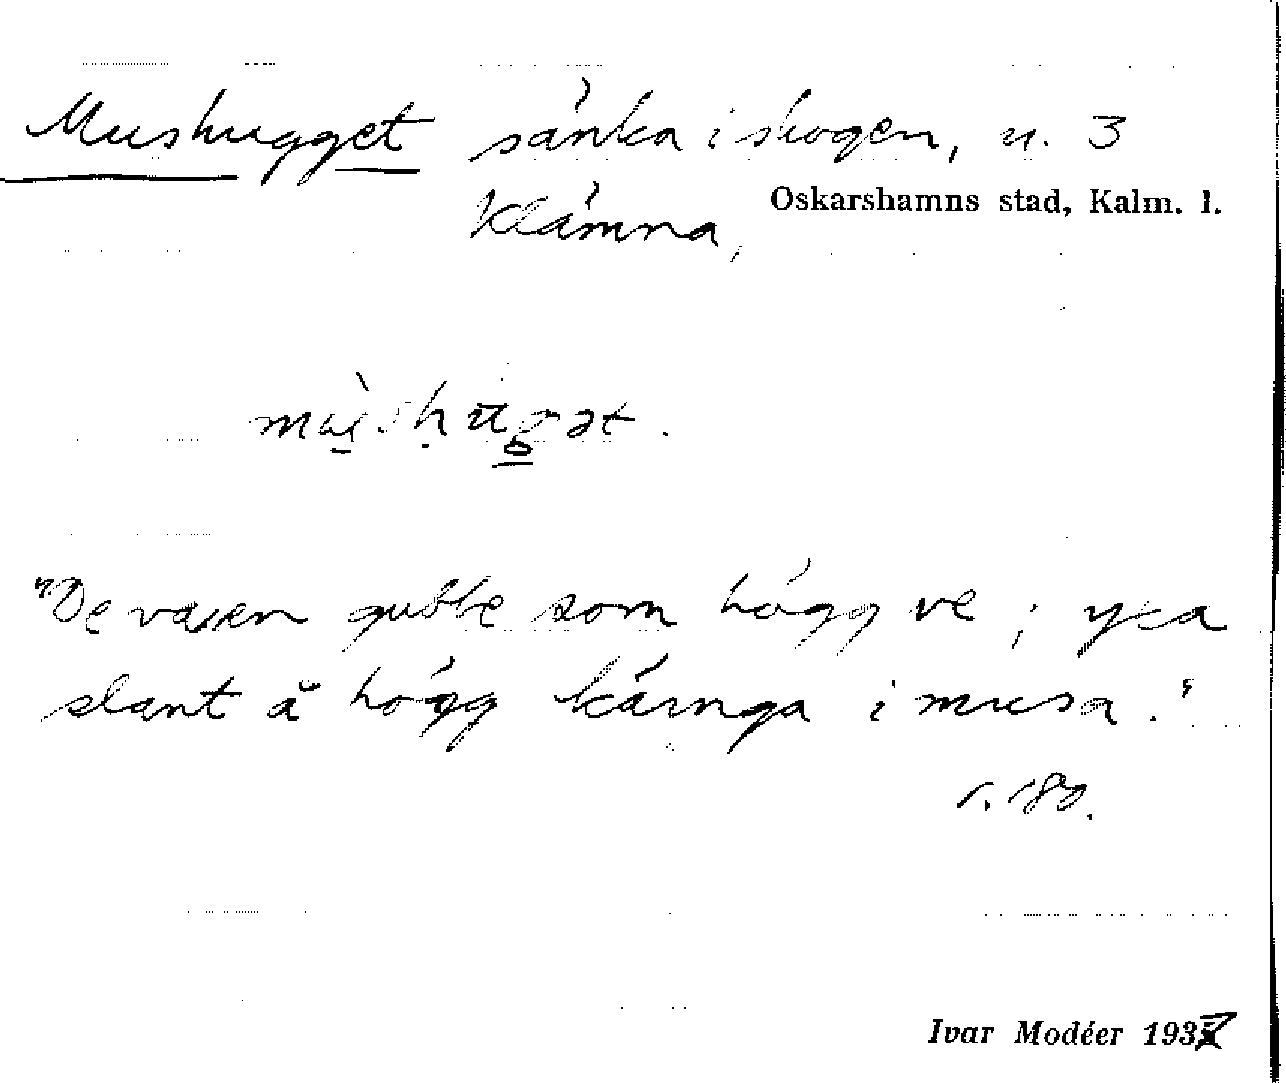 Mushugget sänka i skogen, u. 3
Klämna,
Oskarshamns stad, Kalm. l.
"De va en gubbe som högg ve ; yxa
slant å högg kärnga i musa."
r. 180.
Ivar Modéer 193